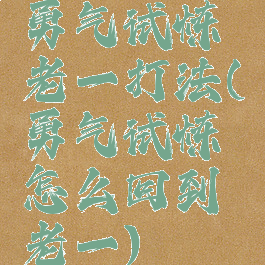 勇气试炼
老一打法(
勇气试炼
怎么回到
老一)